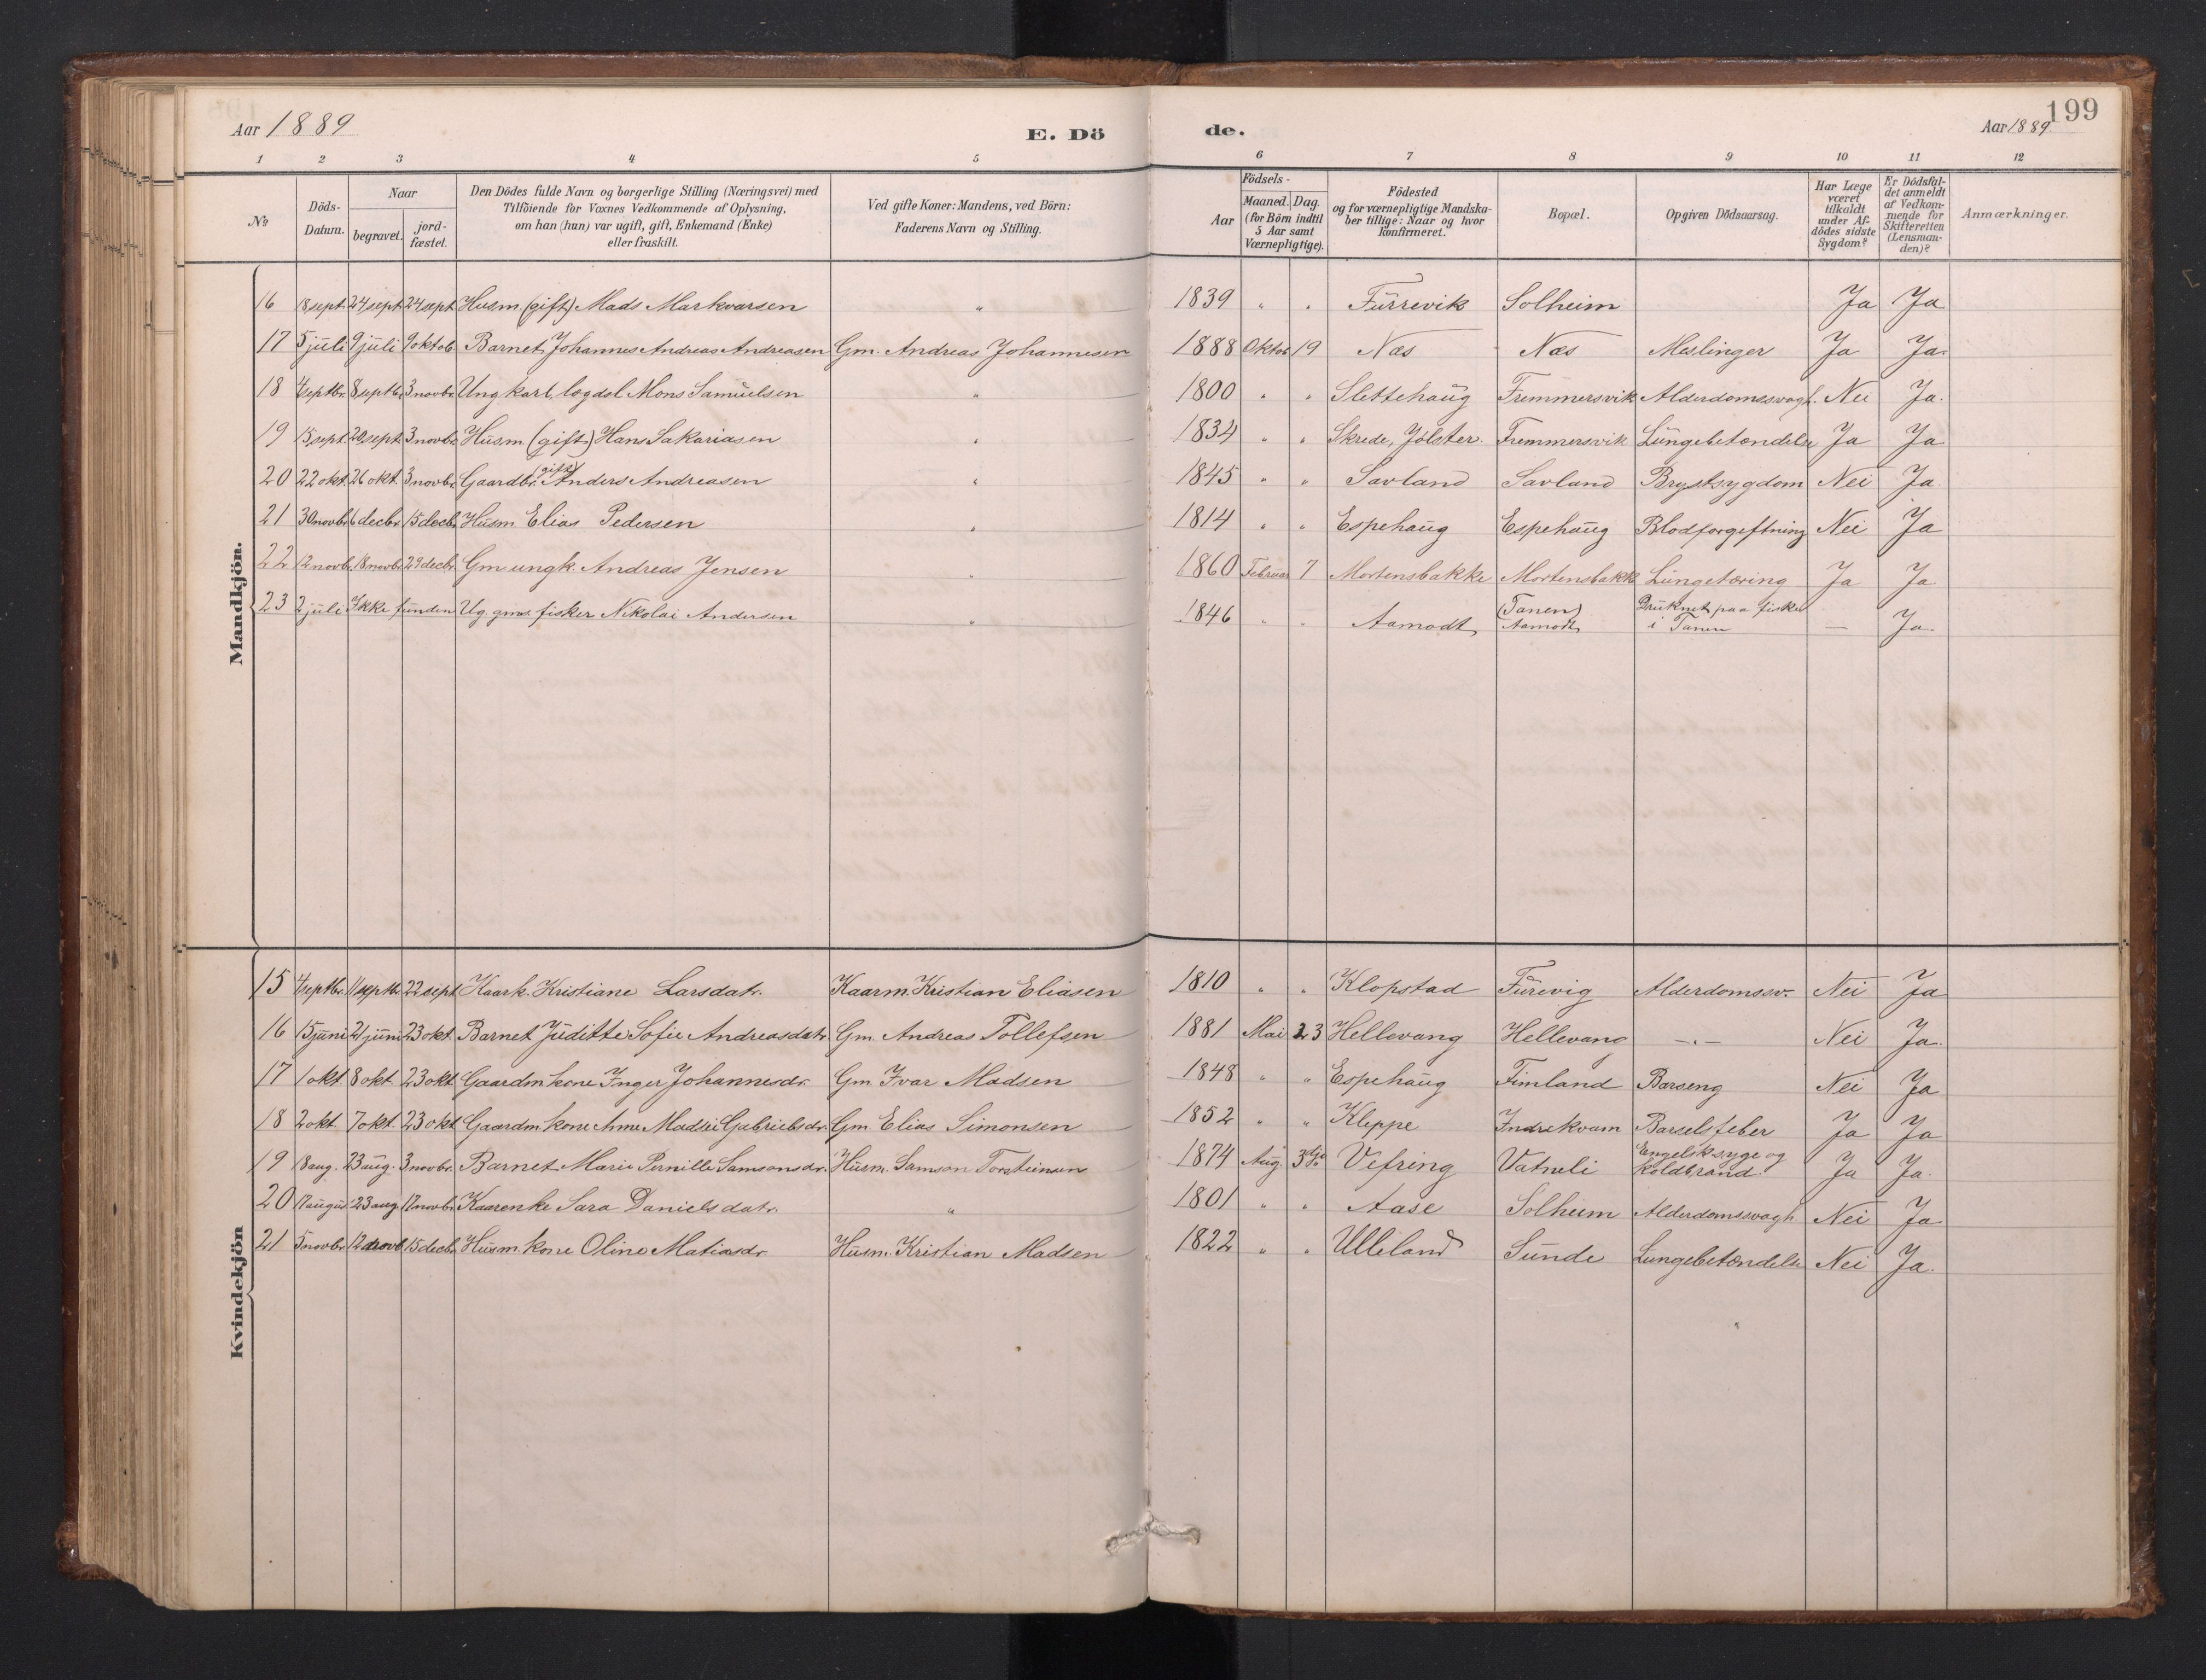 199
Aar 1889
E. Dö
de.
Aar 1889
1 2 3 4 5 6 7 8 9 10 11 12
№
Döds-Datum.
Naar
begravet.
jord-fæstet.
Den Dödes fulde Navn og borgerlige Stilling (Næringsvei) med
Tilföiende for Voxnes Vedkommende af Oplysning,
om han (hun) var ugift, gift, Enkemand (Enke)
eller fraskilt.
Ved gifte Koner: Mandens, ved Börn:
Faderens Navn og Stilling.
Födsels-
Aar
Maaned. Dag.
(for Börn indtil
5 Aar samt
Værnepligtige).
Födested
og for værnepligtige Mandska-
ber tillige: Naar og hvor
Konfirmeret.
Bopæl.
Opgiven Dödsaarsag.
Har Læge
været
tilkaldt
under Af-
dödes sidste
Sygdom?
Er Dödsfal-
det anmeldt
af Vedkom-
mende for
Skifteretten
(Lensman-
den)?
Anmærkninger.
Mandkjön.
16 18 sept. 24 sept 24 sept Husm (gift) Mads Markvarsen " 1839 " " Furrevik Solheim Ja Ja
17 5 juli 9 juli 9 oktob. Barnet Johannes Andreas Andreasen Gm. Andreas Johannesen 1888 Oktob 19 Næs Næs Meslinger Ja Ja.
18 4 septbr. 8 septb. 3 novbr. Ungkarl, logdsl Mons Samuelsen " 1800 " " Slettehaug Fremmersvik Alderdomssvagh. Nei Ja.
19 15 sept. 20 sept. 3 novbr. Husm. (gift) Hans Sakariasen " 1834 " " Skrede, Jølster. Fremmersvik Lungebetændelse Ja Ja
20 22 okt. 26 okt. 3 novbr. Gaardbr. (gift) Anders Andreasen " 1845 " " Savland Savland Brystsygdom Nei Ja
21 30 novbr. 6 decbr. 15 decb. Husm. Elias Pedersen " 1814 " " Espehaug Espehaug Blodforgiftning Nei Ja
22 12 novb. 18 novb. 29 decbr. Gm ungk. Andreas Jensen " 1860 Februar 7 Mortensbakke Mortensbakk Lungetæring Ja Ja
23 2 juli Ikke funden Ug. gms. fisker Nikolai Andersen " 1846 " " Aamodt (Tanen) Aamodt Druknet paa fiske i Tanen — Ja.
Kvindekjön
15 4 septbr. 11 septb. 22 sept Kaark. Kristiane Larsdatr. Kaarm. Kristian Eliasen 1810 " " Klopstad Furevig Alderdomssv. Nei Ja
16 15 juni 21 juni 23 okt. Barnet Juditte Sofie Andreasdatr. Gm. Andreas Tollefsen 1881 Mai 23 Hellevang Hellevang —"— Nei Ja.
17 1 okt. 8 okt. 23 okt Gaardm. kone Inger Johannesdr. Gm. Ivar Madsen 1848 " " Espehaug Fimland Barseng Nei Ja
18 2 okt. 7 okt. 23 okt Gaardm. kone Anne Madsie Gabrielsdr. Gm Elias Simonsen 1852 " " Kleppe Indrekvam Barselsfeber Ja Ja
19 18 aug. 23 aug. 3 novbr. Barnet Marie Pernille Samsonsdr. Husm. Samson Torsteinsen 1874 Aug. Vefring Vatneli Engelsksyge og Koldbrand. Ja Ja.
20 17 august 23 aug. 17 novbr. Kaarenke Sara Danielsdatr. " 1801 " " Aase Solheim Alderdomssvagh Nei Ja
21 5 novbr. 12 novb. 15 decbr. Husm. kone Oline Matiasdr. Husm. Kristian Madsen 1822 " " Ulleland Sunde Lungebetændelse Nei Ja.